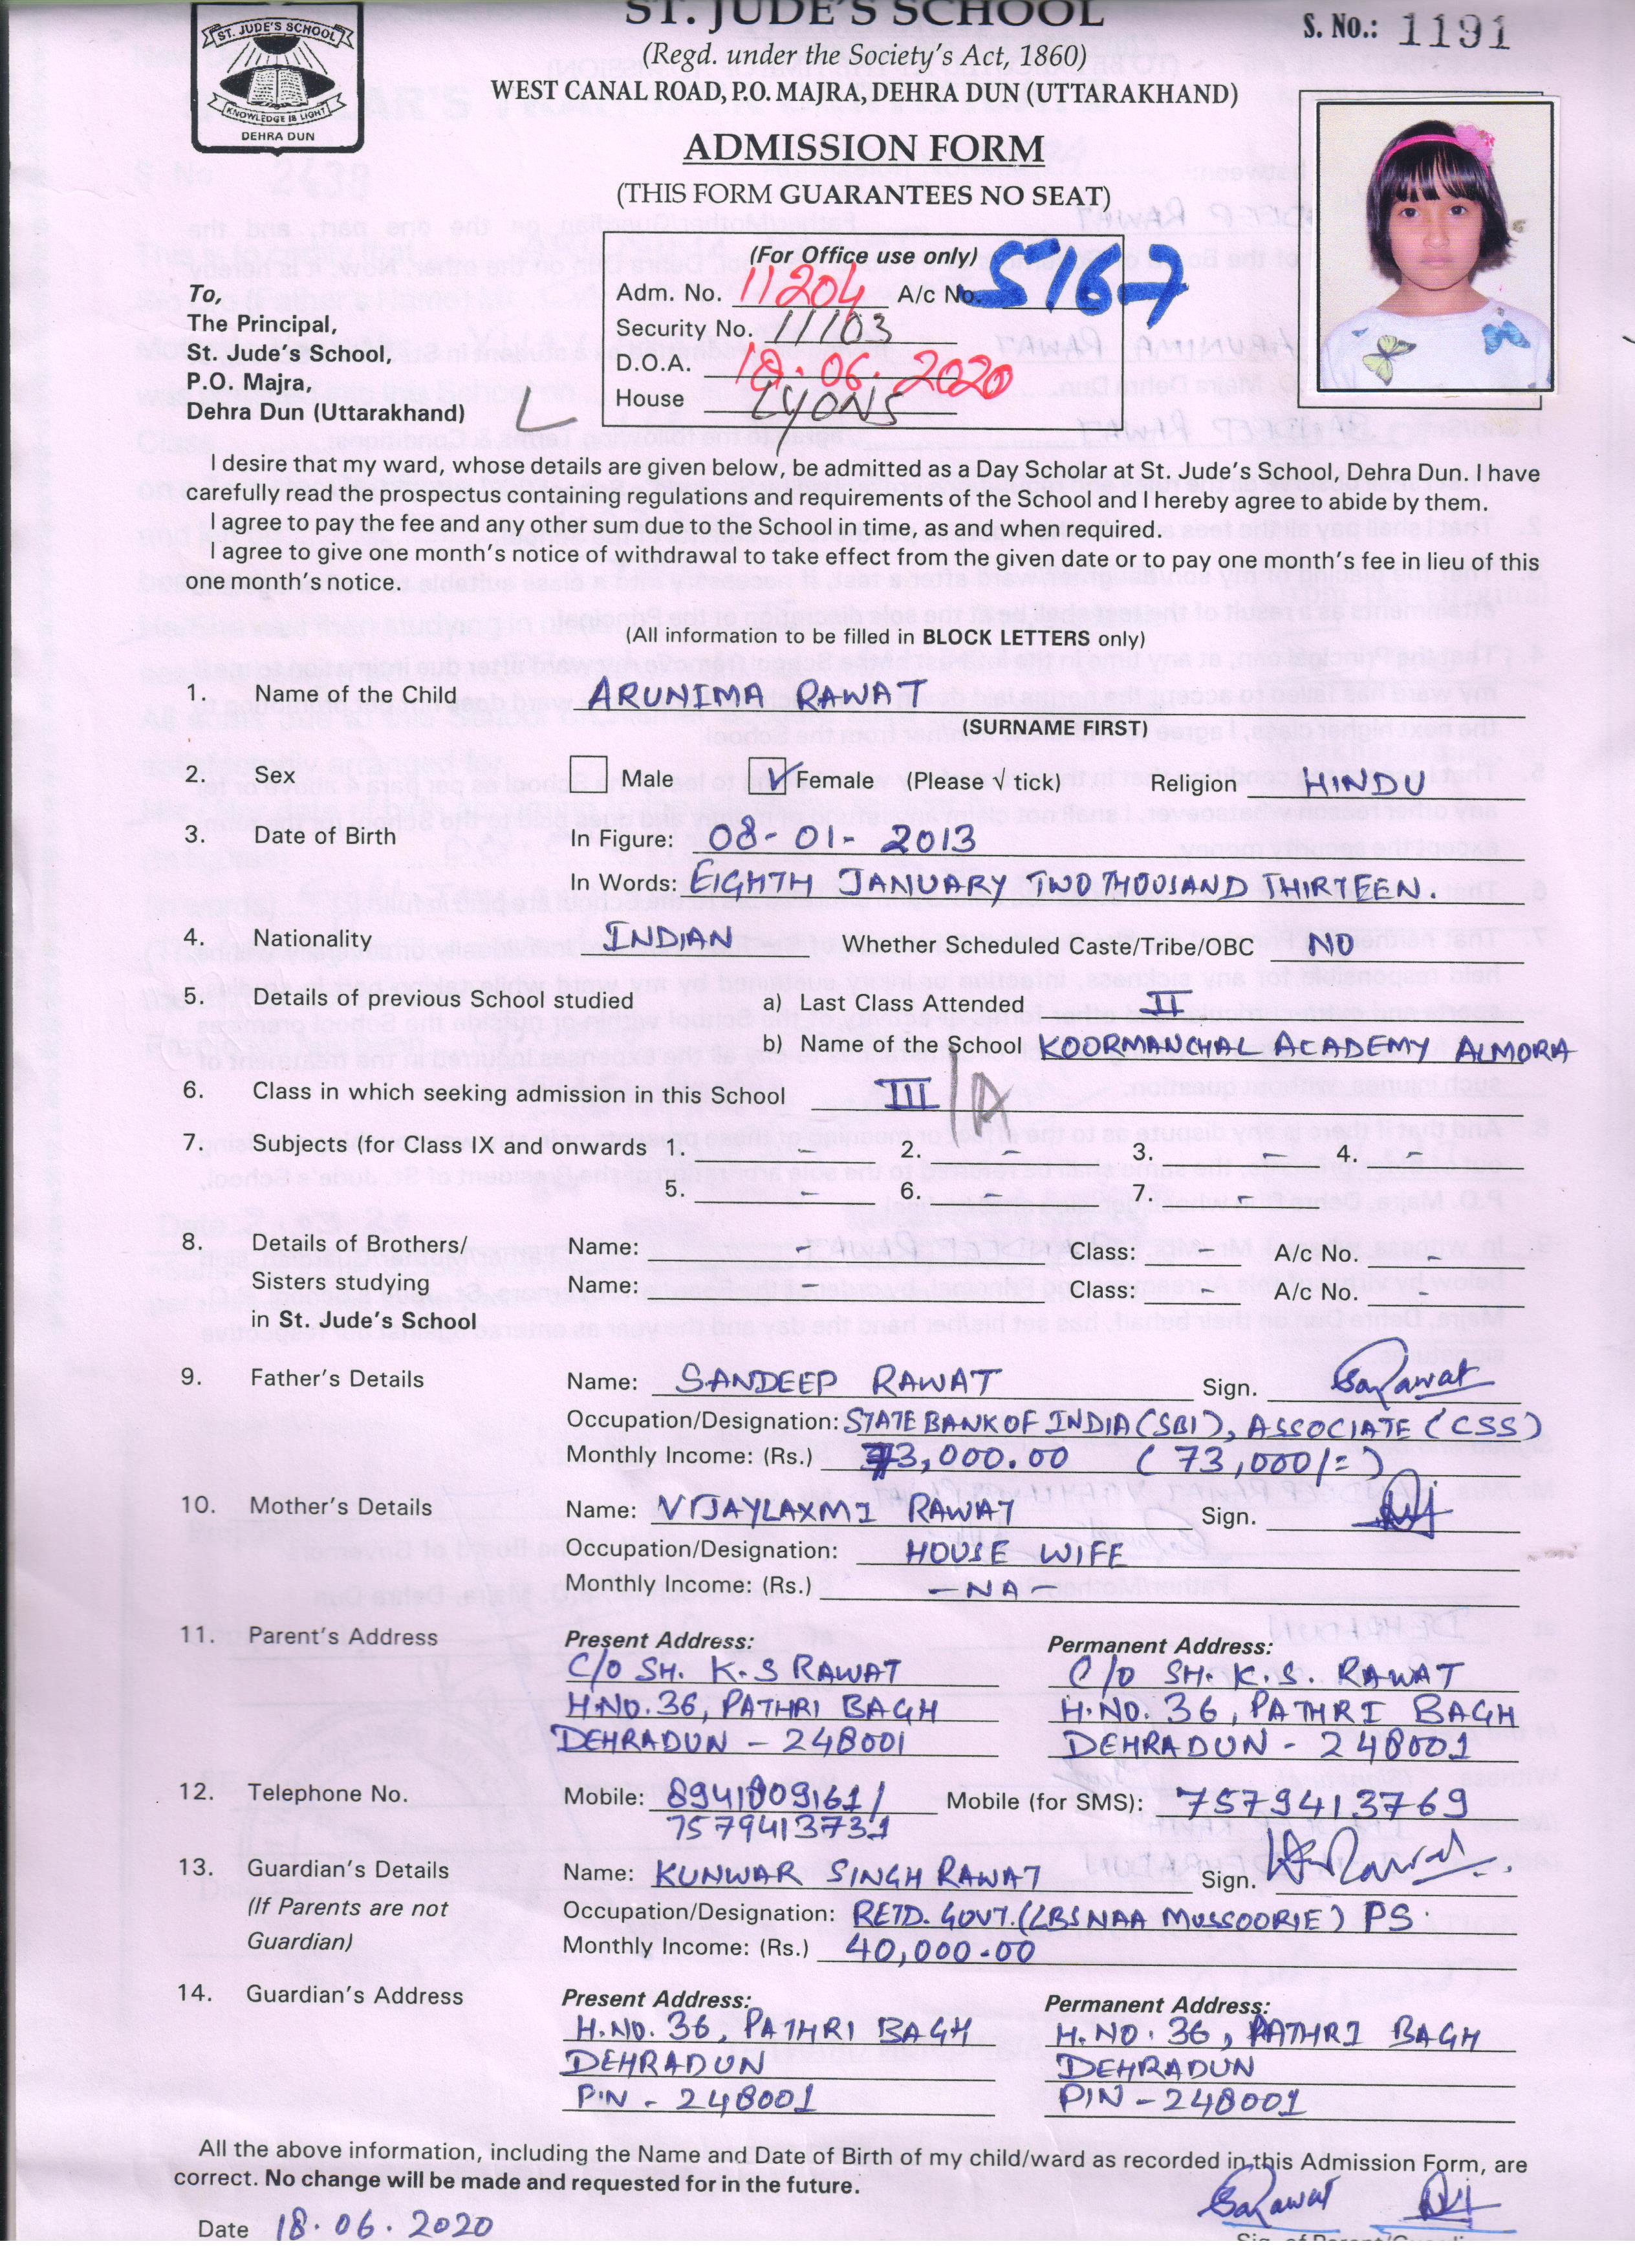 ST. JUDE'S SCHOOL
KNOWLEDGE IS LIGHT
DEHRA DUN
ST. JUDE'S SCHOOL
(Regd. under the Society's Act, 1860)
WEST CANAL ROAD, P.O. MAJRA, DEHRA DUN (UTTARAKHAND)
S. No.: 1191
ADMISSION FORM
(THIS FORM GUARANTEES NO SEAT)
(For Office use only)
Adm. No. 11204 A/c No. 5167
Security No. 11103
D.O.A. 18.06.2020
House LYONS
To,
The Principal,
St. Jude's School,
P.O. Majra,
Dehra Dun (Uttarakhand)
I desire that my ward, whose details are given below, be admitted as a Day Scholar at St. Jude's School, Dehra Dun. I have
carefully read the prospectus containing regulations and requirements of the School and I hereby agree to abide by them.
I agree to pay the fee and any other sum due to the School in time, as and when required.
I agree to give one month's notice of withdrawal to take effect from the given date or to pay one month's fee in lieu of this
one month's notice.
(All information to be filled in BLOCK LETTERS only)
1. Name of the Child ARUNIMA RAWAT
(SURNAME FIRST)
2. Sex Male ✓ Female (Please √ tick) Religion HINDU
3. Date of Birth In Figure: 08-01-2013
In Words: EIGHTH JANUARY TWO THOUSAND THIRTEEN.
4. Nationality INDIAN Whether Scheduled Caste/Tribe/OBC NO
5. Details of previous School studied a) Last Class Attended II
b) Name of the School KOORMANCHAL ACADEMY ALMORA
6. Class in which seeking admission in this School III/A
7. Subjects (for Class IX and onwards 1. - 2. - 3. - 4. -
5. - 6. - 7. -
8. Details of Brothers/ Name: - Class: - A/c No. -
Sisters studying Name: - Class: - A/c No. -
in St. Jude's School
9. Father's Details Name: SANDEEP RAWAT Sign. SRawat
Occupation/Designation: STATE BANK OF INDIA (SBI), ASSOCIATE (CSS)
Monthly Income: (Rs.) 73,000.00 (73,000/=)
10. Mother's Details Name: VIJAYLAXMI RAWAT Sign.
Occupation/Designation: HOUSE WIFE
Monthly Income: (Rs.) - NA
11. Parent's Address Present Address: Permanent Address:
C/O SH. K.S RAWAT C/O SH. K.S. RAWAT
H.NO. 36, PATHRI BAGH H.NO. 36, PATHRI BAGH
DEHRADUN - 248001 DEHRADUN - 248001
12. Telephone No. Mobile: 8941809161/ Mobile (for SMS): 7579413769
7579413731
13. Guardian's Details Name: KUNWAR SINGH RAWAT Sign.
(If Parents are not Occupation/Designation: RETD. GOVT. (LBSNAA MUSSOORIE) PS.
Guardian) Monthly Income: (Rs.) 40,000.00
14. Guardian's Address Present Address: Permanent Address:
H.NO. 36, PATHRI BAGH H.NO. 36, PATHRI BAGH
DEHRADUN DEHRADUN
PIN - 248001 PIN - 248001
All the above information, including the Name and Date of Birth of my child/ward as recorded in this Admission Form, are
correct. No change will be made and requested for in the future.
SRawat
Date 18.06.2020